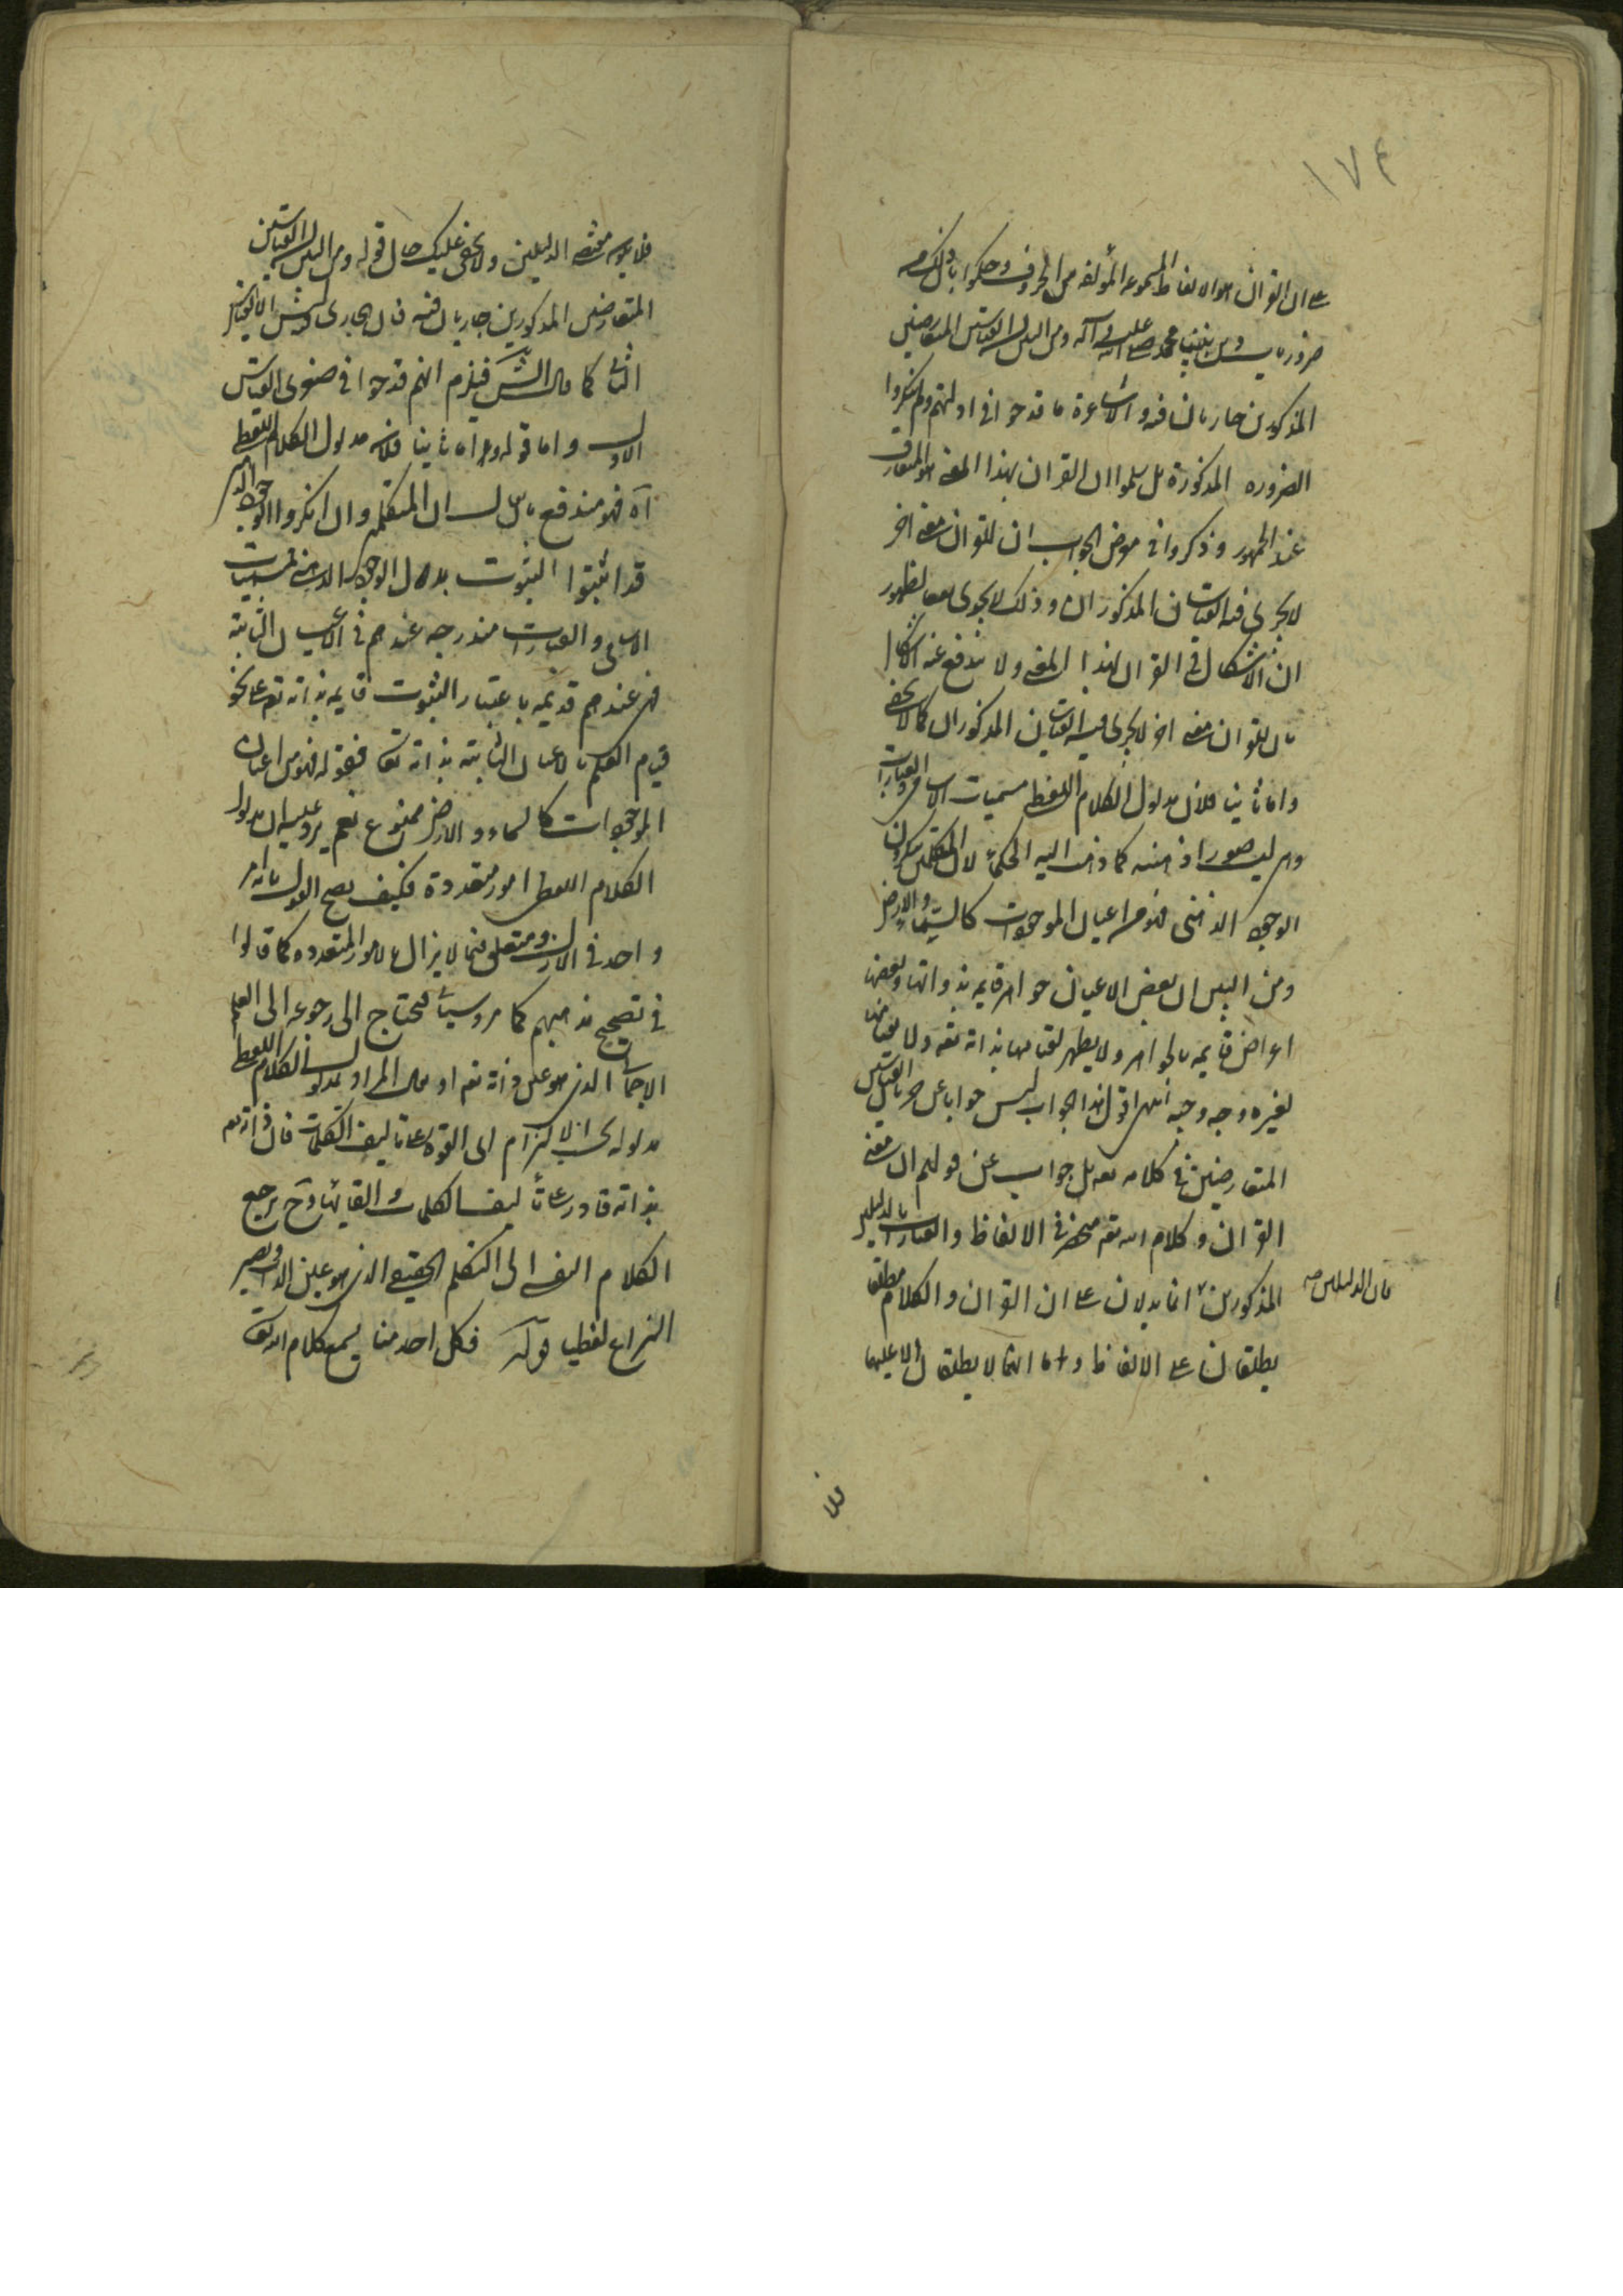 ١٧٤
على ان القران هو الالفاظ المسموعة المؤلفة من الحروف وحكموا بان ذلك من
ضروريات دين نبينا محمد صلى الله عليه وآله ومن البين ان القياسين المتعارضين
المذكورين جاريان فيه والاشاعرة ما قدحوا في ادلتهم ولم ينكروا
الضرورة المذكورة بل سلموا ان القران بهذا المعنى هو المتعارف
عند الجمهور وذكروا في معرض الجواب ان للقران معنى اخر
لا يجري فيه القياسان المذكوران وذلك لا يجدي نفعا لظهور
ان الاشكال في القران بهذا المعنى ولا يندفع عنه الاشكال
بان للقران معنى اخر لا يجري فيه القياسان المذكوران كما لا يخفى
واما ثانيا فلان مدلول الكلام اللفظي مسميات الاسامي والعبارات
وهي ليست صورا ذهنية كما ذهب اليه الحكماء لان المتكلمين ينكرون
الوجود الذهني فهو من اعيان الموجودات كالسماء والارض
ومن البين ان بعض الاعيان جواهر قايمة بذواتها وبعضها
اعراض قايمة بالجواهر ولا يظهر لقيامها بذاته تعالى ولا لقيامها
لغيره وجه وجيه انتهى اقول هذا الجواب ليس جوابا عن جريان القياسين
المتعارضين في كلامه تعالى بل جواب عن قولهم ان معنى
القران وكلام الله تعالى منحصر في الالفاظ والعبارات بالدليلين
المذكورين انما يدلان على ان القران والكلام مطلقا
فان الدليلين صح
يطلقان على الالفاظ واما انهما لا يطلقان الا عليها
فلا
فلا يدل عليه الدليلين ولا يخفى عليك حال قوله ومن البين ان القياسين
المتعارضين المذكورين جاريان فيه فان الجاري فيه ليس الا القياس
الثاني كما قال الش فيلزم انهم قدحوا في صغرى القياس
الاول واما قوله واما ثانيا فلان مدلول الكلام اللفظي
آه فهو مندفع بان المتكلمين وان انكروا الوجود الذهني
قد اثبتوا الثبوت بدل الوجود الذهني فمسميات
الاسامي والعبارات مندرجة عندهم في الاعيان الثابتة
فهي عندهم قديمة باعتبار الثبوت قايمة بذاته تعالى على نحو
قيام العلم بالاعيان الثابتة بذاته تعالى فقوله فهو من اعيان
الموجودات كالسماء والارض ممنوع نعم يرد عليه ان مدلول
الكلام اللفظي امور متعددة فكيف يصح القول بانه امر
واحد في الازل ومتعلق فيما لا يزال بالامور المتعددة كما قالوا
في تصحيح مذهبهم كما مر وسيأتي فيحتاج الى رجوعه الى العلم
الاجمالي الذي هو عين ذاته تعالى او يقال المراد بمدلول الكلام اللفظي
مدلوله بحسب الالتزام اي القوة على تاليف الكلمات فان ذاته تعالى
بذاته قادر على تأليف الكلمات والقائها وح يرجع
الكلام النفسي الى التكلم الحقيقي الذي هو عين الذات ويصير
النزاع لفظيا قوله فكل احد منا يسمع كلام الله تعالى